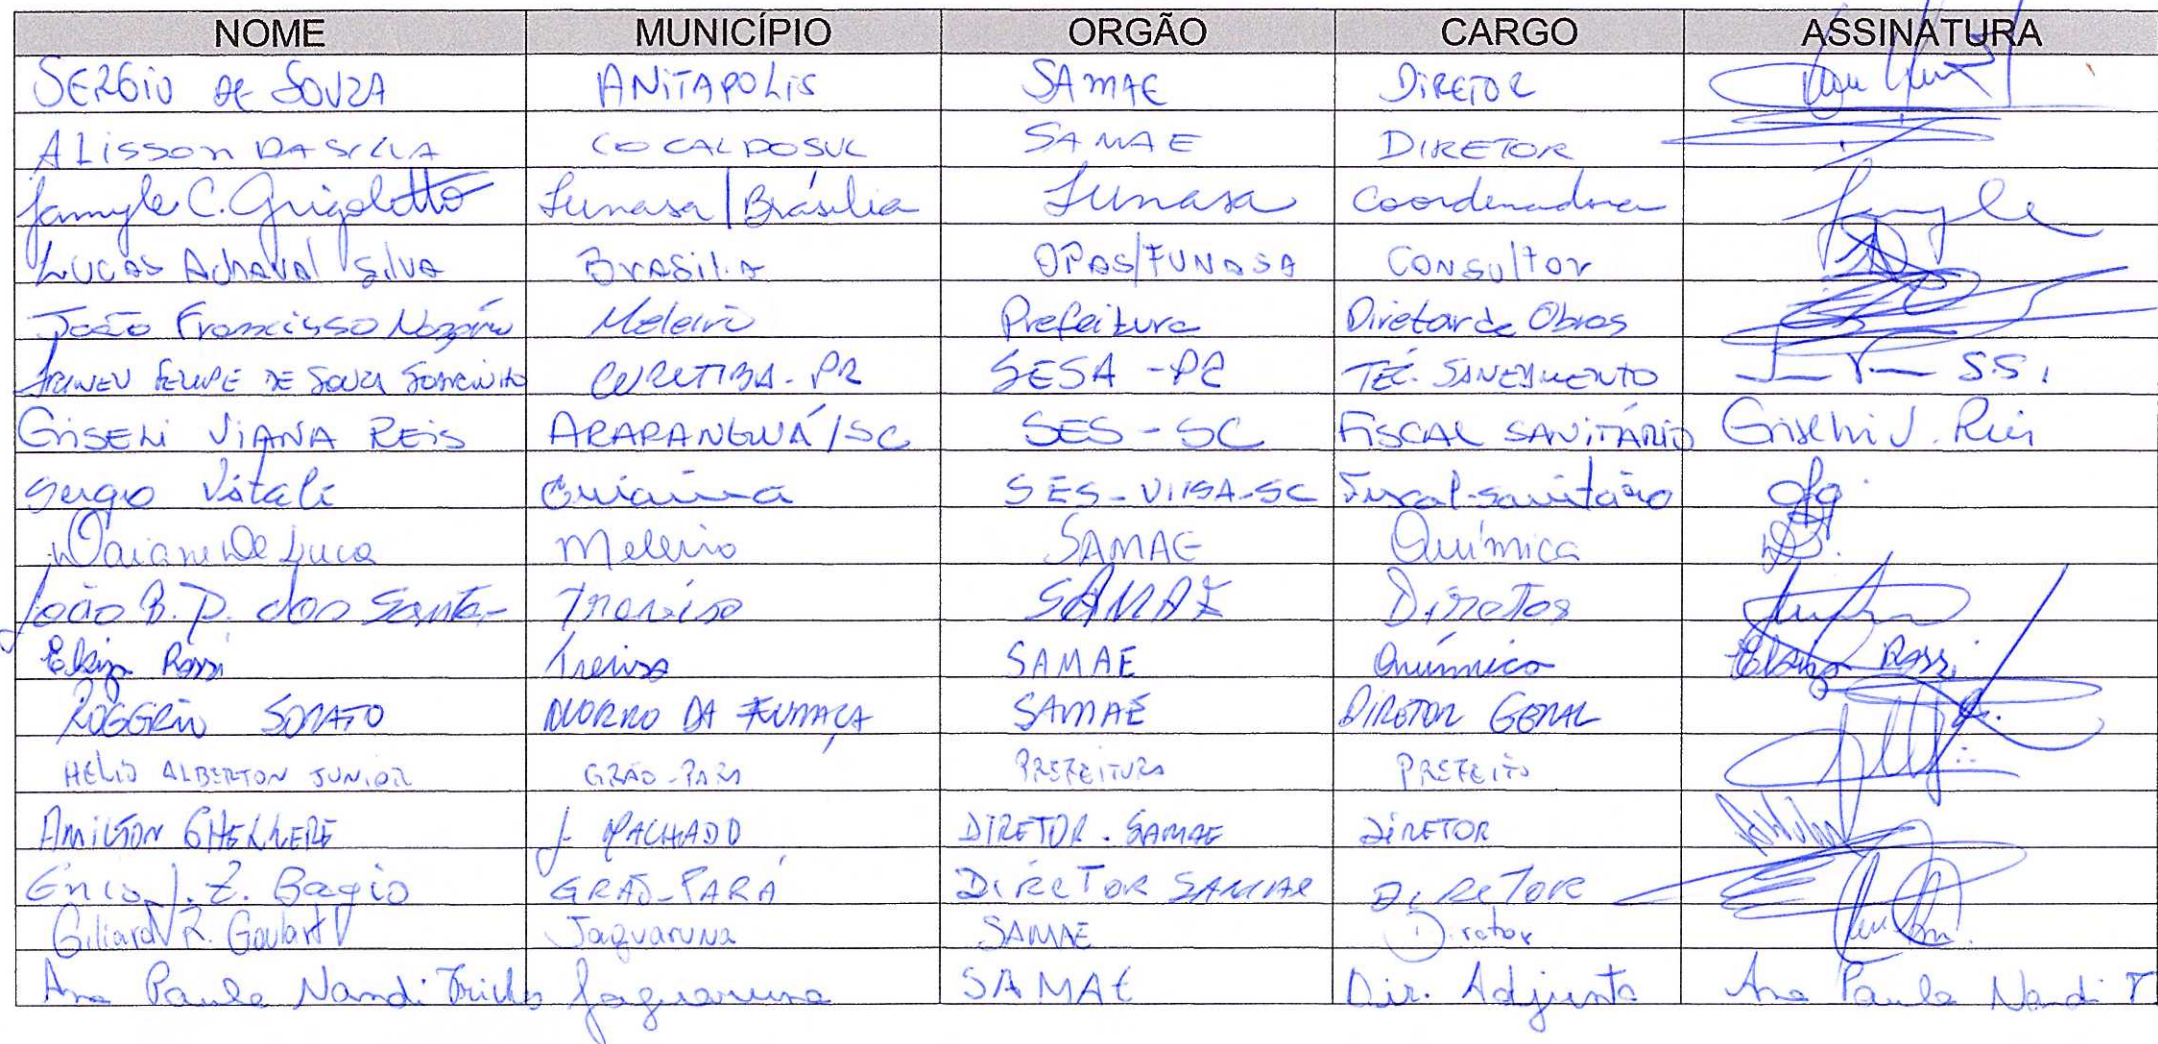 NOME MUNICÍPIO ORGÃO CARGO ASSINATURA
SERGIO DE SOUZA ANITAPOLIS SAMAE DIRETOR
ALISSON DA SILVA COCAL DO SUL SAMAE DIRETOR
Jamyle C. Grigoletto Funasa/Brásilia Funasa Coordenadora Jamyle
LUCAS Achaval Silva Brasilia OPAS/FUNASA Consultor
João Francisco Nazário Meleiro Prefeitura Diretor de Obras
IRINEU FELIPE DE SOUZA SOBRINHO CURITIBA - PR SESA - PR TÉC. SANEAMENTO S.S.
GISELI VIANA REIS ARARANGUÁ/SC SES - SC FISCAL SANITÁRIO Giseli V. Reis
Sergio Vitali Criciúma SES-VIISA-SC Fiscal-sanitário
Daiane De Luca Meleiro SAMAE Química
João B. P. dos Santos Treviso SAMAE Diretor
Rossi Treviso SAMAE Químico Rossi
ROGÉRIO SORATO MORRO DA FUMAÇA SAMAE DIRETOR GERAL
HELIO ALBERTON JUNIOR GRÃO-PARÁ PREFEITURA PREFEITO
AMILTON GHELLERE J. MACHADO DIRETOR. SAMAE DIRETOR
Enio J. Z. Bagio GRÃO-PARÁ DIRETOR SAMAE DIRETOR
Giliard R. Goulart Jaguaruna SAMAE Diretor
Ana Paula Nandi Jaguaruna SAMAE Dir. Adjunta Ana Paula Nandi T